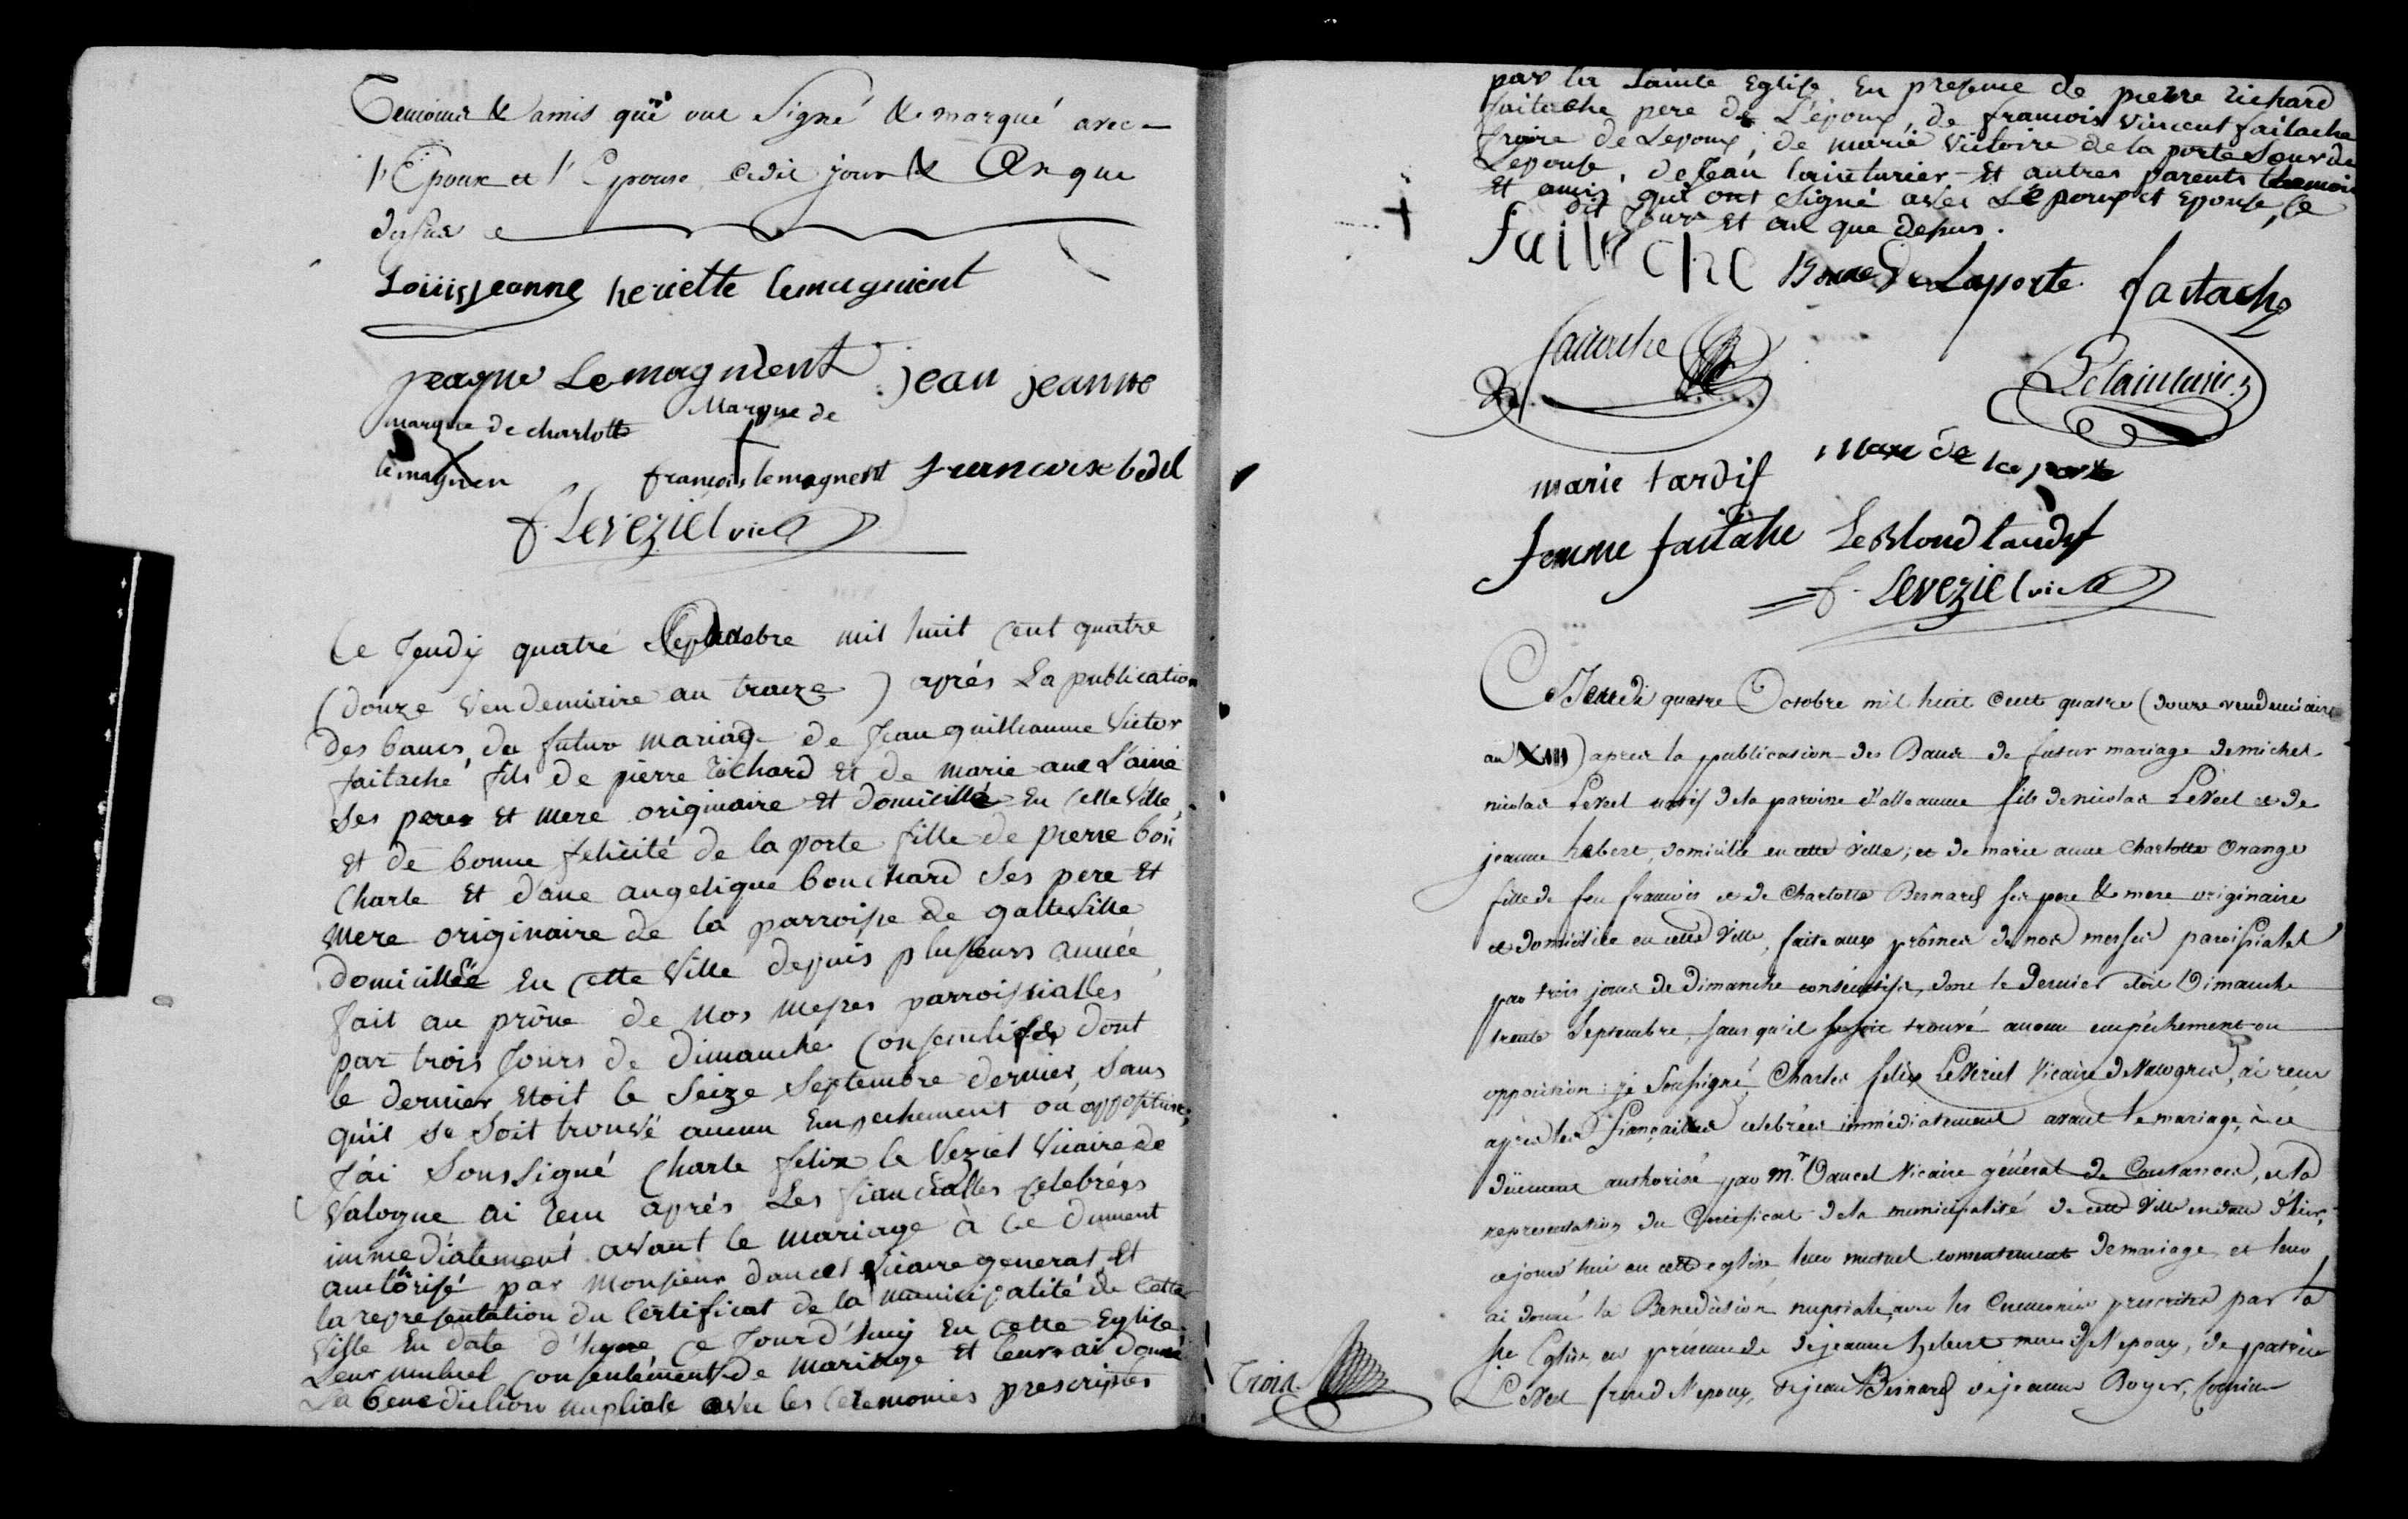 Temoins & amis qui ont Signé & marqué avec
l'Epoux et l'Epouse cedit jour & An que
dessus
Louis Jeanne heriette lemagnient
jeaque Lemagnient jean jeanne
marque de charlotte Marque de
lemagnen francois lemagnent francoise bedel
f. Leveziel vic
Ce Jeudy quatre octobre mil huit cent quatre
(douze vendemiaire an treize) aprés La publication
des bancs du futur mariage de Jean guilleaume Victor
faitache fils de pierre Richard et de marie ane L'ainé
Ses peres et mere originaire et domicillé en cette ville,
et de bonne felicité de la porte fille de pierre bon
Charle et d'ane angelique bouchard Ses pere et
mere originaire de la parroisse de gatteville
domicillée en cette ville depuis plusieurs année,
fait au prône de nos messes parroissialles
par trois Jours de dimanche Consecutifes dont
le dernier etoit le Seize Septembre dernier, Sans
qu'il se Soit trouvé aucun empechement ou opposition;
J'ai Soussigné Charle felix le Veziel Vicaire de
Valogne ai recu aprés Les fiancialles celebrées
immediatement avant le mariage à ce dument
autorisé par monsieur dancel vicaire general et
la representation du certificat de la municipalité de cette
ville en date d'hyere ce Jour d'huy en cette Eglise
Leur mutuel consentement de mariage et leur ai donné
La benediction nuptiale avec les ceremonies prescriptes
par la Sainte Eglise en presence de pierre richard
faitache pere de L'époux, de francois vincent faitache
frere de Lepoux, de marie victoire de la porte Soeur de
Lepouse, de Jean et autres parents temoins
et amis qui ont signé avec Lépoux et Epouse, ce
dit Jour et an que desus.
faitache Bonne De Laporte faitache
faitache
marie tardif Marie de la porte
femme faitache LeBlond tardif
f. Leveziel vic
Ce Jeudi quatre Octobre mil huit cent quatre (douze vendemiaire
an XIII) apres la publication des Bancs de futur mariage de michel
nicolas Levéel natif de la paroisse d'alleaume fils de nicolas Levéel et de
jeanne hebert, domicilié en cette ville; et de marie anne Charlotte Orange
fille de feu francois et de Charlotte Besnard ses pere & mere originaire
et domiciliée en cette ville, faite aux prônes de nos messes paroissiales
par trois jours de Dimanche consecutifs, dont le dernier étoit Dimanche
trente Septembre, sans qu'il se soit trouvé aucun empéchement ou
opposition: je Soussigné Charles felix LeVeziel Vicaire de Valognes, ai recu
après les fiançailles celebrées immédiatement avant le mariage, à ce
duement authorisé par Mr. Dancel Vicaire général de Coutances, et la
representation du Certificat de la municipalité de cette ville en date d'hier,
ce jourd'hui en cette eglise leur mutuel consentement de mariage et leur
ai donné la Benediction nuptiale avec les Ceremonies prescrites par la
Ste Eglise, en présence de de jeanne hebert mere de l'epoux, de
Levéel frere de l'epoux, de jean Besnard de jeanne Boyer, Cousin
Trois.